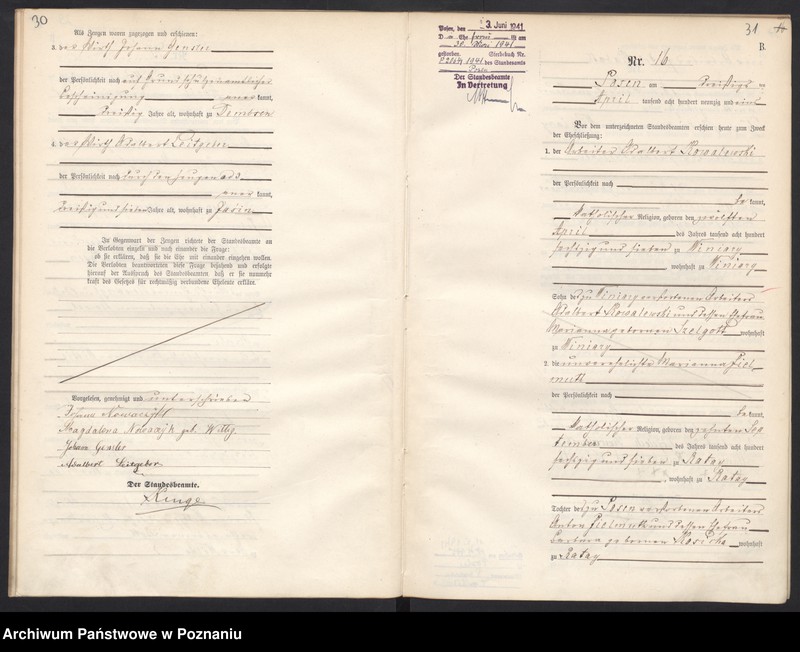 30
Als Zeugen waren zugezogen und erschienen:
3. der Wirth Johann Gensler
der Persönlichkeit nach auf Grund
Bescheinigung kannt,
dreißig Jahre alt, wohnhaft zu Dembsen
4. der Wirth Adalbert Leitgeber
der Persönlichkeit nach durch den Zeugen ad 3
kannt,
dreißig und sieben Jahre alt, wohnhaft zu
In Gegenwart der Zeugen richtete der Standesbeamte an
die Verlobten einzeln und nach einander die Frage:
ob sie erklären, daß sie die Ehe mit einander eingehen wollen.
Die Verlobten beantworteten diese Frage bejahend und erfolgte
hierauf der Ausspruch des Standesbeamten, daß er sie nunmehr
kraft des Gesetzes für rechtmäßig verbundene Eheleute erkläre.
Vorgelesen, genehmigt und unterschrieben
Magdalena geb.
Johann Gensler
Adalbert Leitgeber
Der Standesbeamte.
31
B.
Posen, den 3. Juni 1941
D Ehe ist am
30. Mai 1941
gestorben. Sterbebuch Nr.
1941 des Standesamts
Posen
Der Standesbeamte
In Vertretung
Nr. 16
Posen am dreißigsten
April tausend acht hundert neunzig und ein
Vor dem unterzeichneten Standesbeamten erschien heute zum Zweck
der Eheschließung:
1. der Arbeiter Adalbert Kowalewski
der Persönlichkeit nach
be kannt,
katholischer Religion, geboren den zwölften
April des Jahres tausend acht hundert
sechzig und sieben zu Winiary
, wohnhaft zu Winiary
Sohn des zu Winiary verstorbenen Arbeiters
Adalbert Kowalewski und dessen Ehefrau
Marianna geborenen Szelgott wohnhaft
zu Winiary
2. die unverehelichte Marianna
der Persönlichkeit nach
be kannt,
katholischer Religion, geboren den zehnten Sep
tember des Jahres tausend acht hundert
sechzig und sieben zu Ratay
, wohnhaft zu Ratay
Tochter des zu Posen verstorbenen Arbeiters
Anton und dessen Ehefrau
Barbara geborenen wohnhaft
zu Ratay
Archiwum Państwowe w Poznaniu